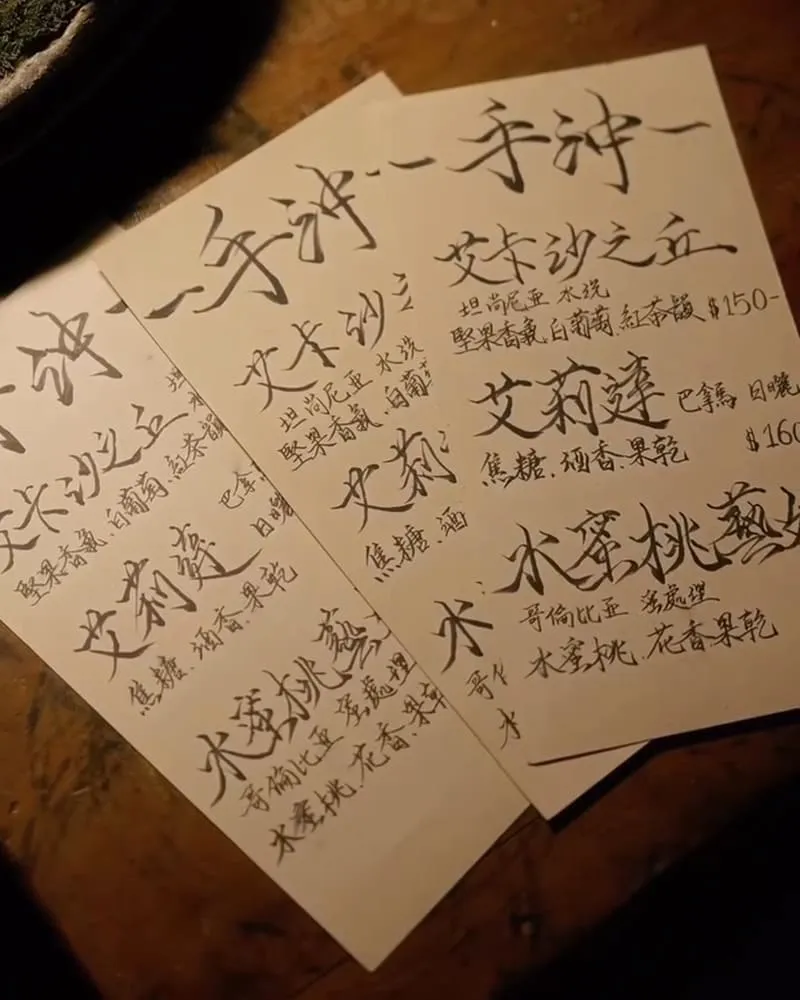 沖一
艾卡沙之丘 坦
堅果香氣.白葡萄.紅茶韻
艾莉達 巴拿
日曬
焦糖.酒香.果乾
水蜜桃藝
哥倫比亞 蜜處理
水蜜桃.花香.果乾
一手沖一
艾卡沙
坦尚尼亞 水洗
堅果香氣.白葡
艾莉
焦糖.酒
水
哥
水
一手沖一
艾卡沙之丘
坦尚尼亞 水洗
堅果香氣.白葡萄.紅茶韻 $150-
艾莉達 巴拿馬 日曬
焦糖.酒香.果乾 $160
水蜜桃藝
哥倫比亞 蜜處理
水蜜桃.花香.果乾